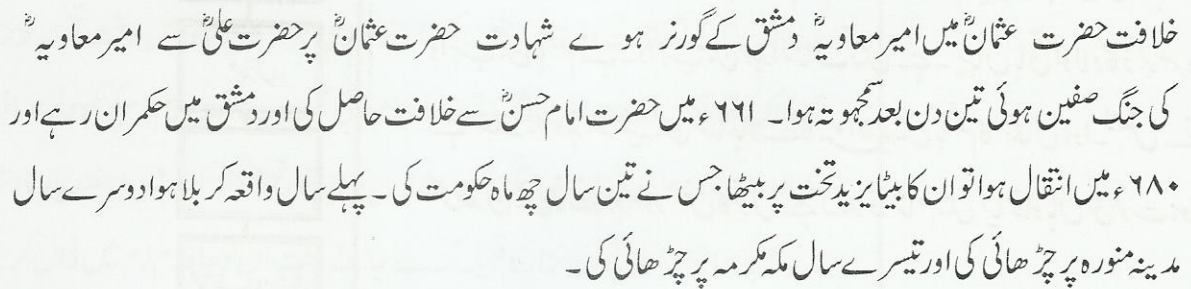 خلافت حضرت عثمانؓ میں امیر معاویہؓ دمشق کے گورنر ہو ے شہادت حضرت عثمانؓ پر حضرت علیؓ سے امیر معاویہؓ
کی جنگ صفین ہوئی تین دن بعد سمجھوتہ ہوا۔ ۶۶۱ء میں حضرت امام حسنؓ سے خلافت حاصل کی اور دمشق میں حکمران رہے اور
۶۸۰ء میں انتقال ہوا تو ان کا بیٹا یزید تخت پر بیٹھا جس نے تین سال چھ ماہ حکومت کی۔ پہلے سال واقعہ کربلا ہوا دوسرے سال
مدینہ منورہ پر چڑھائی کی اور تیسرے سال مکہ مکرمہ پر چڑھائی کی۔